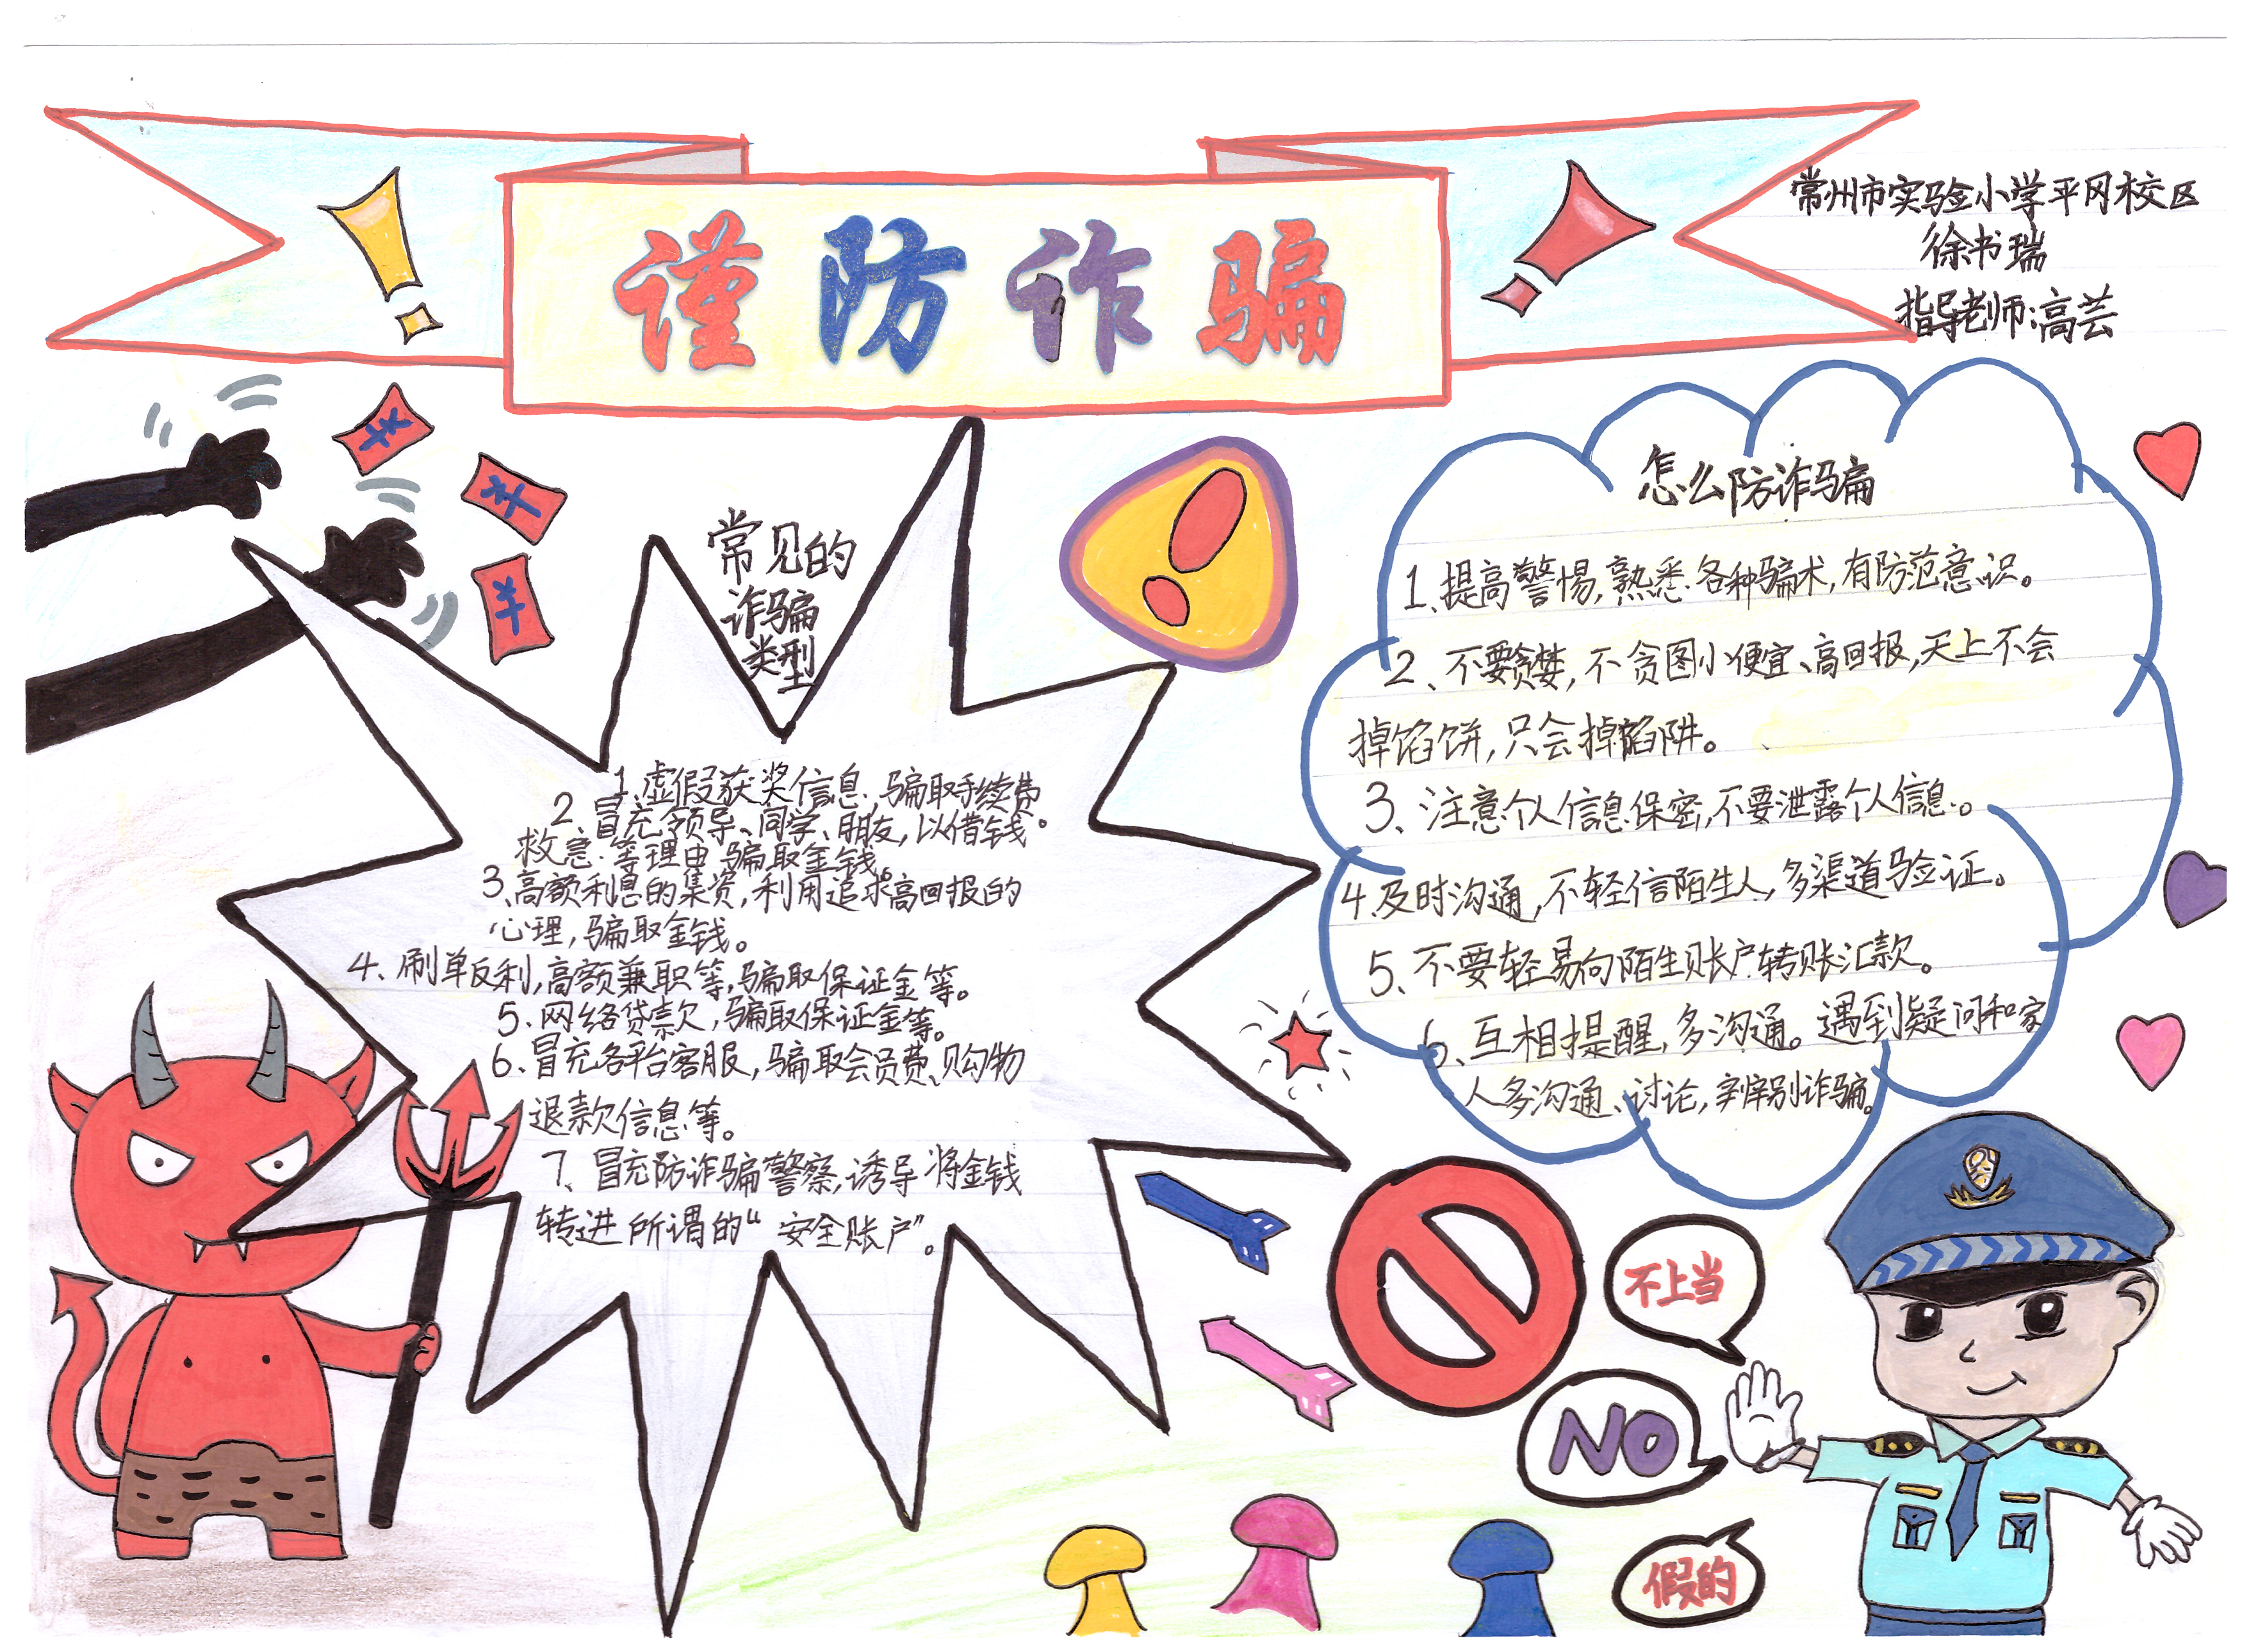 谨防诈骗
常州市实验小学平冈校区
徐书瑞
指导老师:高芸
¥
¥
¥
常见的
诈骗
类型
1、虚假获奖信息、骗取手续费。
2、冒充领导、同学、朋友,以借钱
救急等理由骗取金钱。
3、高额利息的集资,利用追求高回报的
心理,骗取金钱。
4、刷单反利,高额兼职等,骗取保证金等。
5、网络贷款,骗取保证金等。
6、冒充各平台客服,骗取会员费、购物
退款信息等。
7、冒充防诈骗警察,诱导将金钱
转进所谓的“安全账户”。
怎么防诈骗
1、提高警惕,熟悉各种骗术,有防范意识。
2、不要贪婪,不贪图小便宜、高回报,天上不会
掉馅饼,只会掉陷阱。
3、注意个人信息保密,不要泄露个人信息。
4、及时沟通,不轻信陌生人,多渠道验证。
5、不要轻易向陌生账户转账汇款。
6、互相提醒,多沟通。遇到疑问和家
人多沟通、讨论,辨别诈骗。
不上当
NO
假的